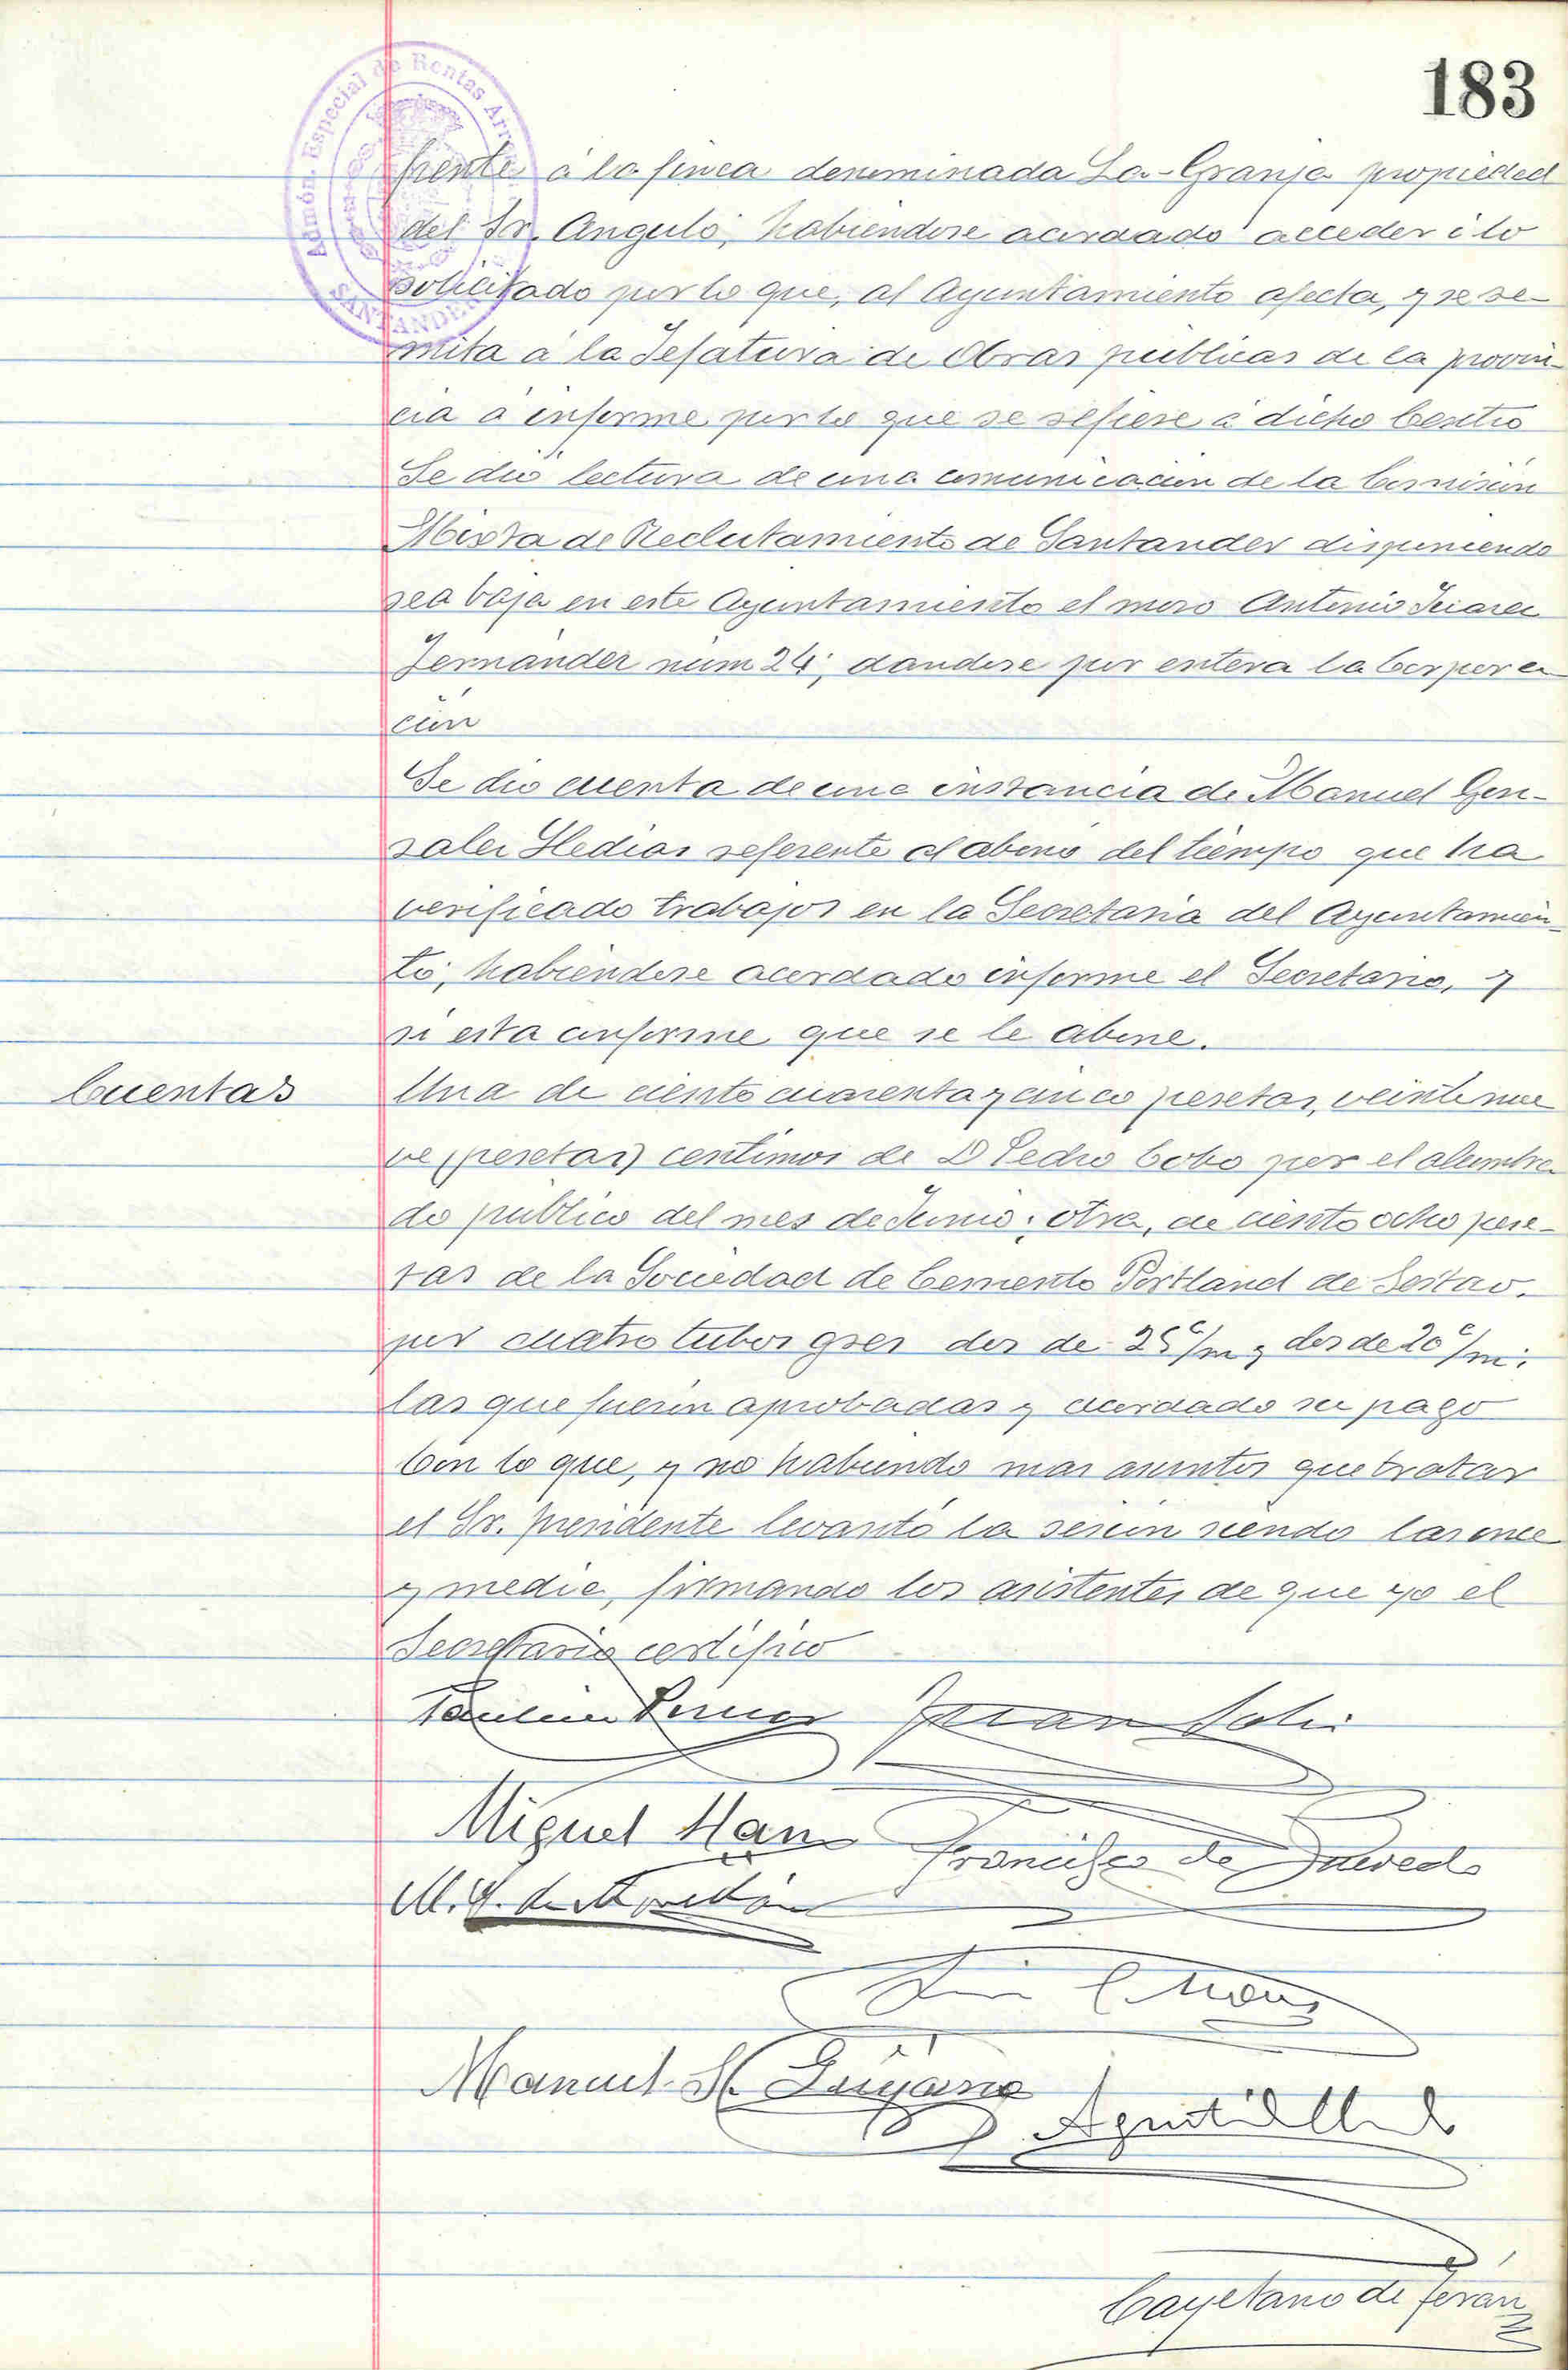 183
Admón. Especial de Rentas Arre
SANTANDER
frente á la finca denominada La-Granja propiedad
del Sr. Angulo; habiendose acordado acceder á lo
solicitado por lo que, al Ayuntamiento afecta, y se re-
mita á la Jefatura de Obras públicas de la provin-
cia á informe por lo que se refiere á dicho Centro
Se dió lectura de una comunicación de la Comisión
Mixta de Reclutamiento de Santander disponiendo
sea baja en este Ayuntamiento el moso Antonio
Fernández núm 24; dandose por entera la Corpora
ción
Se dio cuenta de una instancia de Manuel Gon-
salez Hedias referente al abono del tiempo que ha
verificado trabajos en la Secretaria del Ayuntamien-
to; habiendose acordado informe el Secretario, y
si esta conforme que se le abone.
Cuentas
Una de ciento cuarenta y cinco pesetas, veintenue
ve (pesetas) centimos de D Pedro Cobo por el alumbra
do publico del mes de Junio; otra, de ciento ocho pese-
tas de la Sociedad de Cemento Portland de Sestao.
por cuatro tubos gres dos de 25 c/m y dos de 20 c/m;
las que fueron aprobadas y acordado su pago
Con lo que, y no habiendo mas asuntos que tratar
el Sr. presidente levantó la sesión siendo las once
y media, firmando los asistentes de que yo el
Secretario certifico
Juan Solis
Miguel Haro
Francisco de Quevedo
M.
Manuel S.
Cayetano de Terán